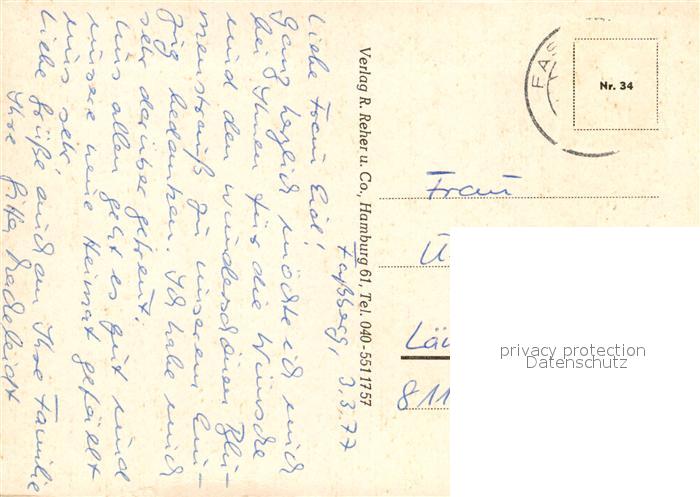 Faßberg, 3.3.77
Liebe Frau Eid!
Ganz herzlich möchte ich mich
bei Ihnen für die Wünsche
und den wunderschönen Blu-
menstrauß zu unserem Ein-
zug bedanken. Ich habe mich
sehr darüber gefreut.
Uns allen geht es gut und
unsere neue Heimat gefällt
uns sehr.
Liebe Grüße auch an Ihre Familie
Ihre Gitta
Verlag R. Reher u. Co., Hamburg 61, Tel. 040-5511757
FA
Nr. 34
Frau
U
Län
811
privacy protection
Datenschutz